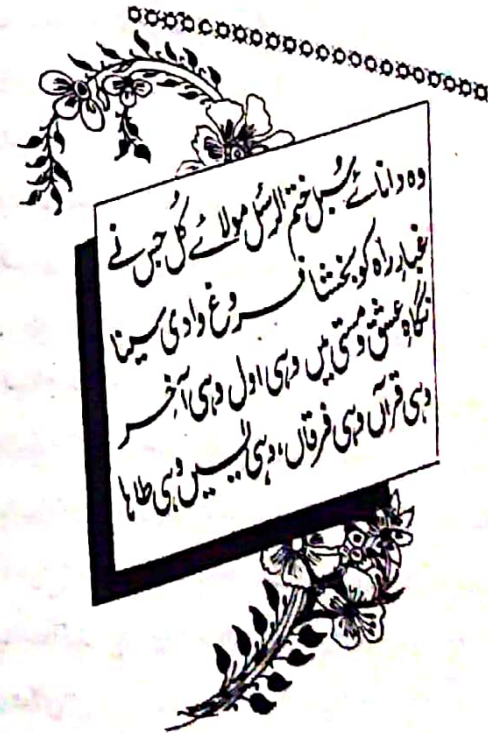 وہ دانائے سُبل ختم الرسُل مولائے کُل جس نے
غبارِ راہ کو بخشا فروغِ وادیِ سینا
نگاہِ عشق و مستی میں وہی اول وہی آخر
وہی قرآں وہی فرقاں، وہی یٰسیں وہی طٰہٰا